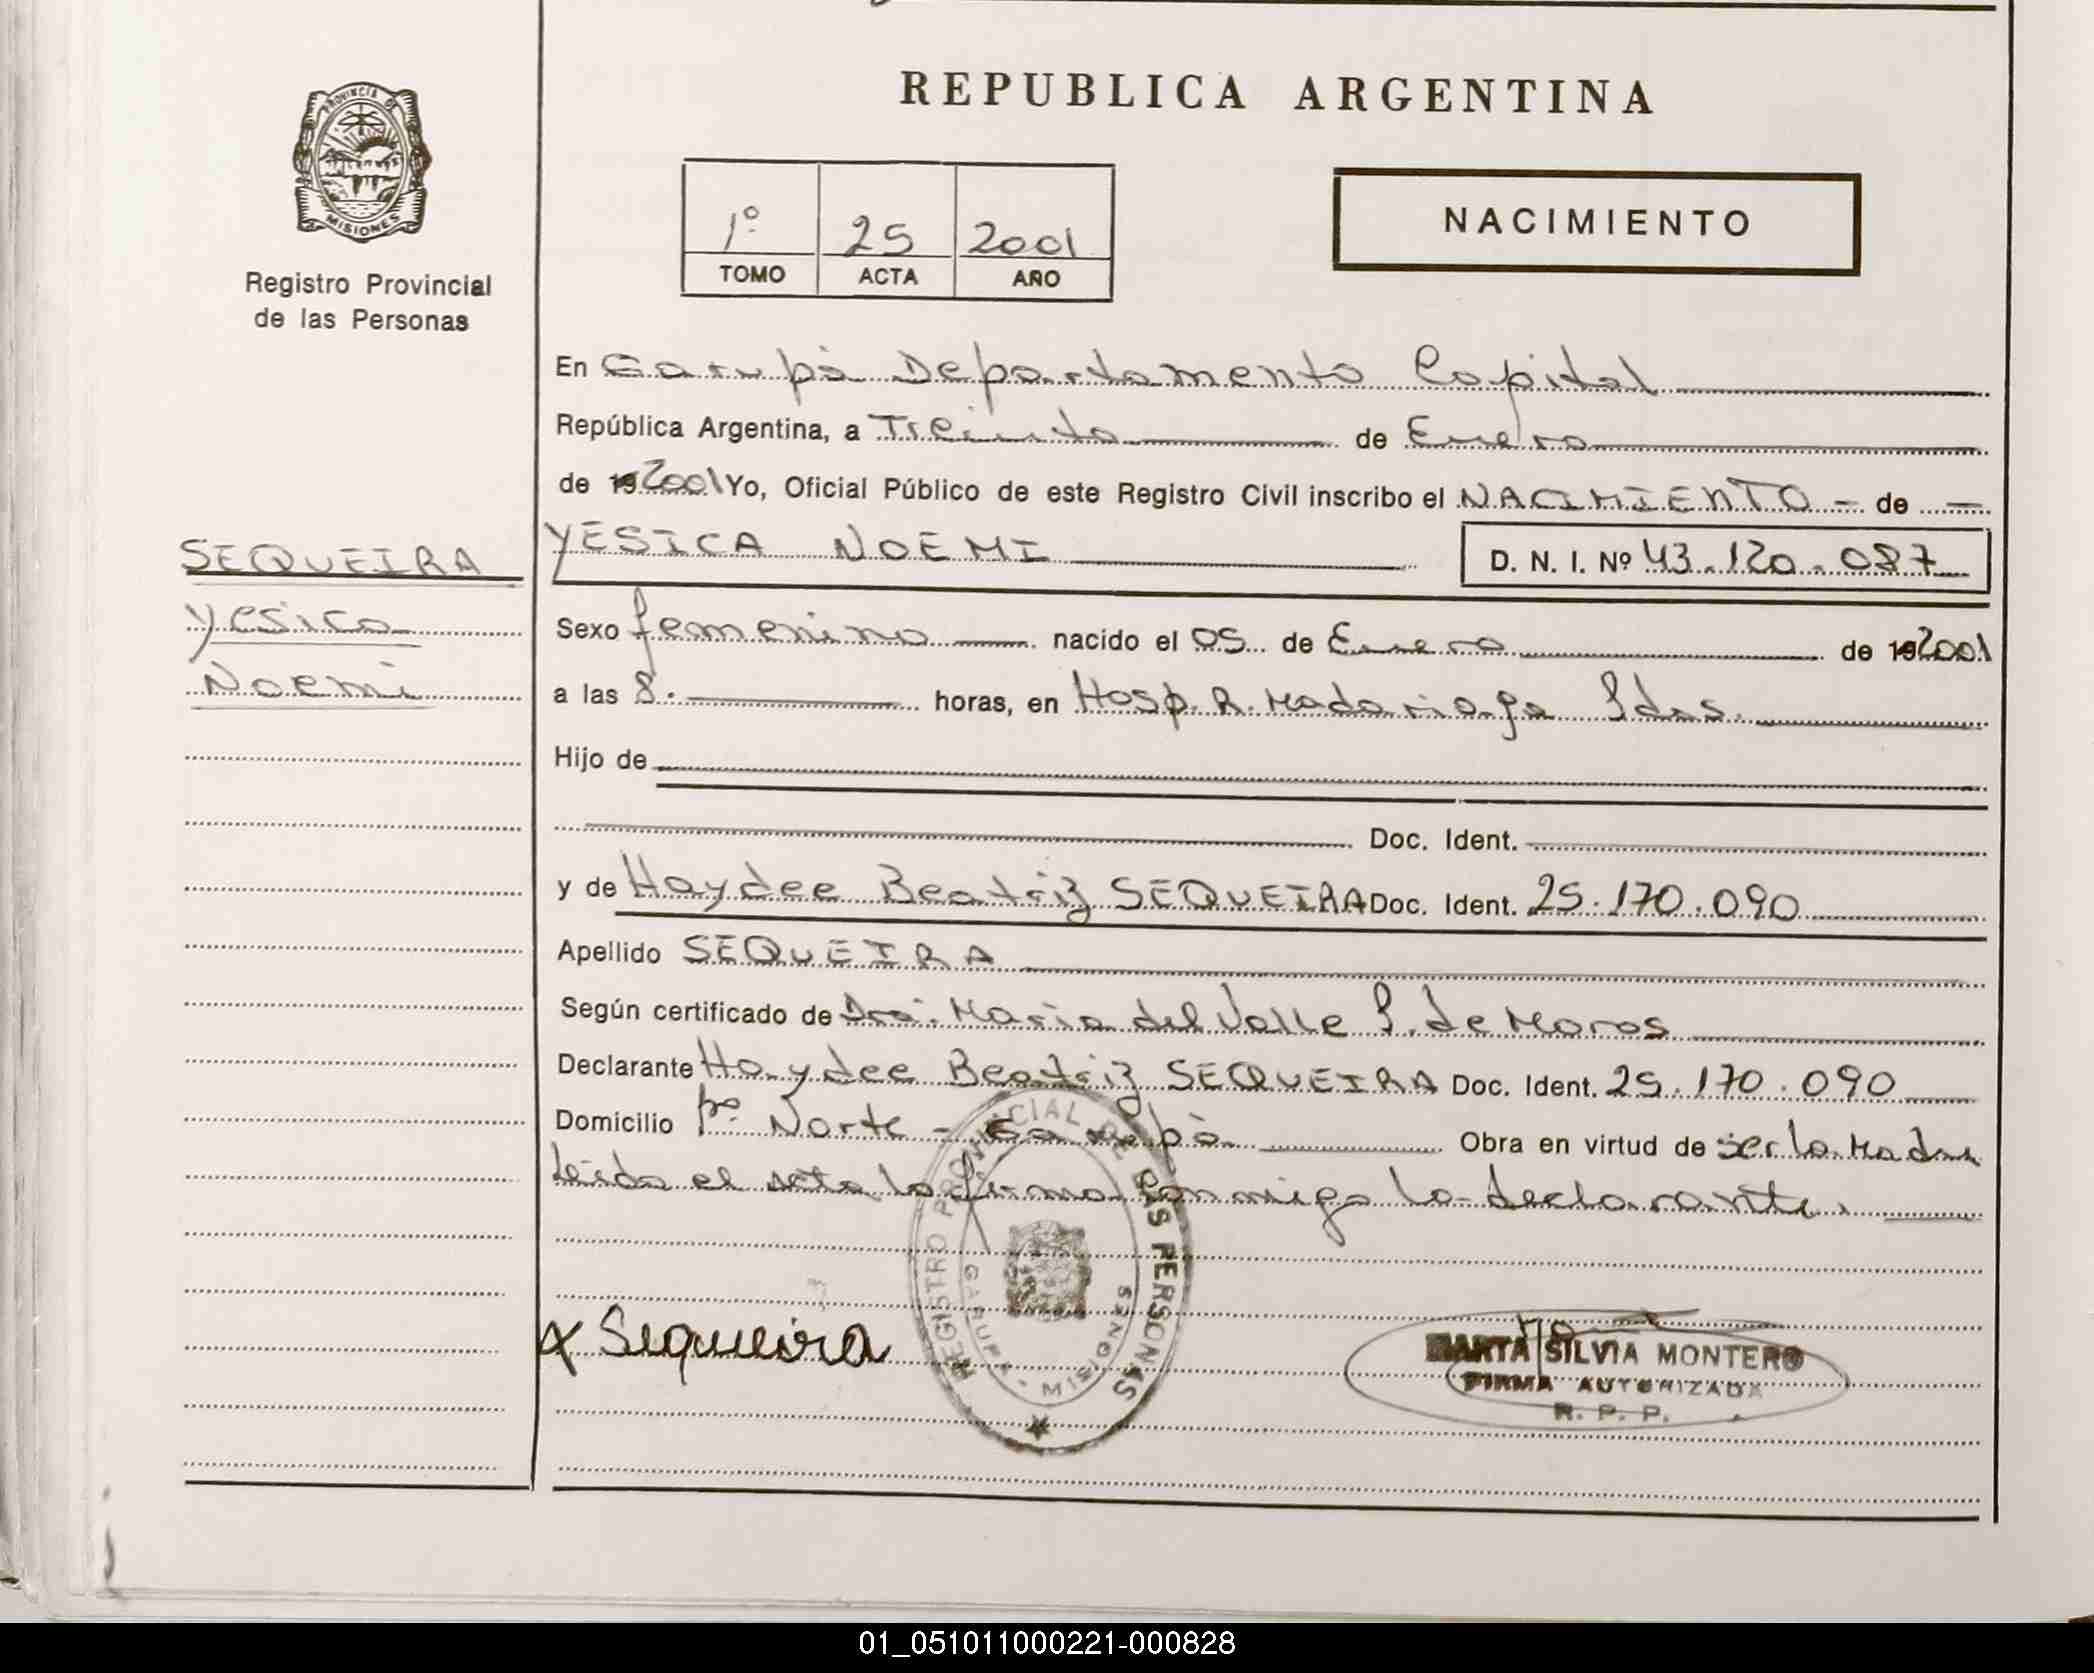 REPUBLICA ARGENTINA
PROVINCIA DE
MISIONES
Registro Provincial
de las Personas
1º 25 2001
TOMO ACTA AÑO
NACIMIENTO
En Garupà Departamento Capital
República Argentina, a Treinta de Enero
de 19 2001 Yo, Oficial Público de este Registro Civil inscribo el NACIMIENTO - de -
SEQUEIRA
YESICA NOEMI D. N. I. Nº 43.120.087
Yesica
Sexo femenino nacido el 05 de Enero de 19 2001
Noemi
a las 8. horas, en Hosp. R. Madariaga Pdas.
Hijo de
Doc. Ident.
y de Haydee Beatriz SEQUEIRA Doc. Ident. 25.170.090
Apellido SEQUEIRA
Según certificado de Dra. Maria del Valle P. de Moros
Declarante Haydee Beatriz SEQUEIRA Doc. Ident. 25.170.090
Domicilio Pº Norte - Garupà Obra en virtud de ser la Madre
Leida el acta la firma conmigo la declarante.
REGISTRO PROVINCIAL DE LAS PERSONAS
GARUPA - MISIONES
x Sequeira
MARTA SILVIA MONTERO
FIRMA AUTORIZADA
R. P. P.
01_051011000221-000828